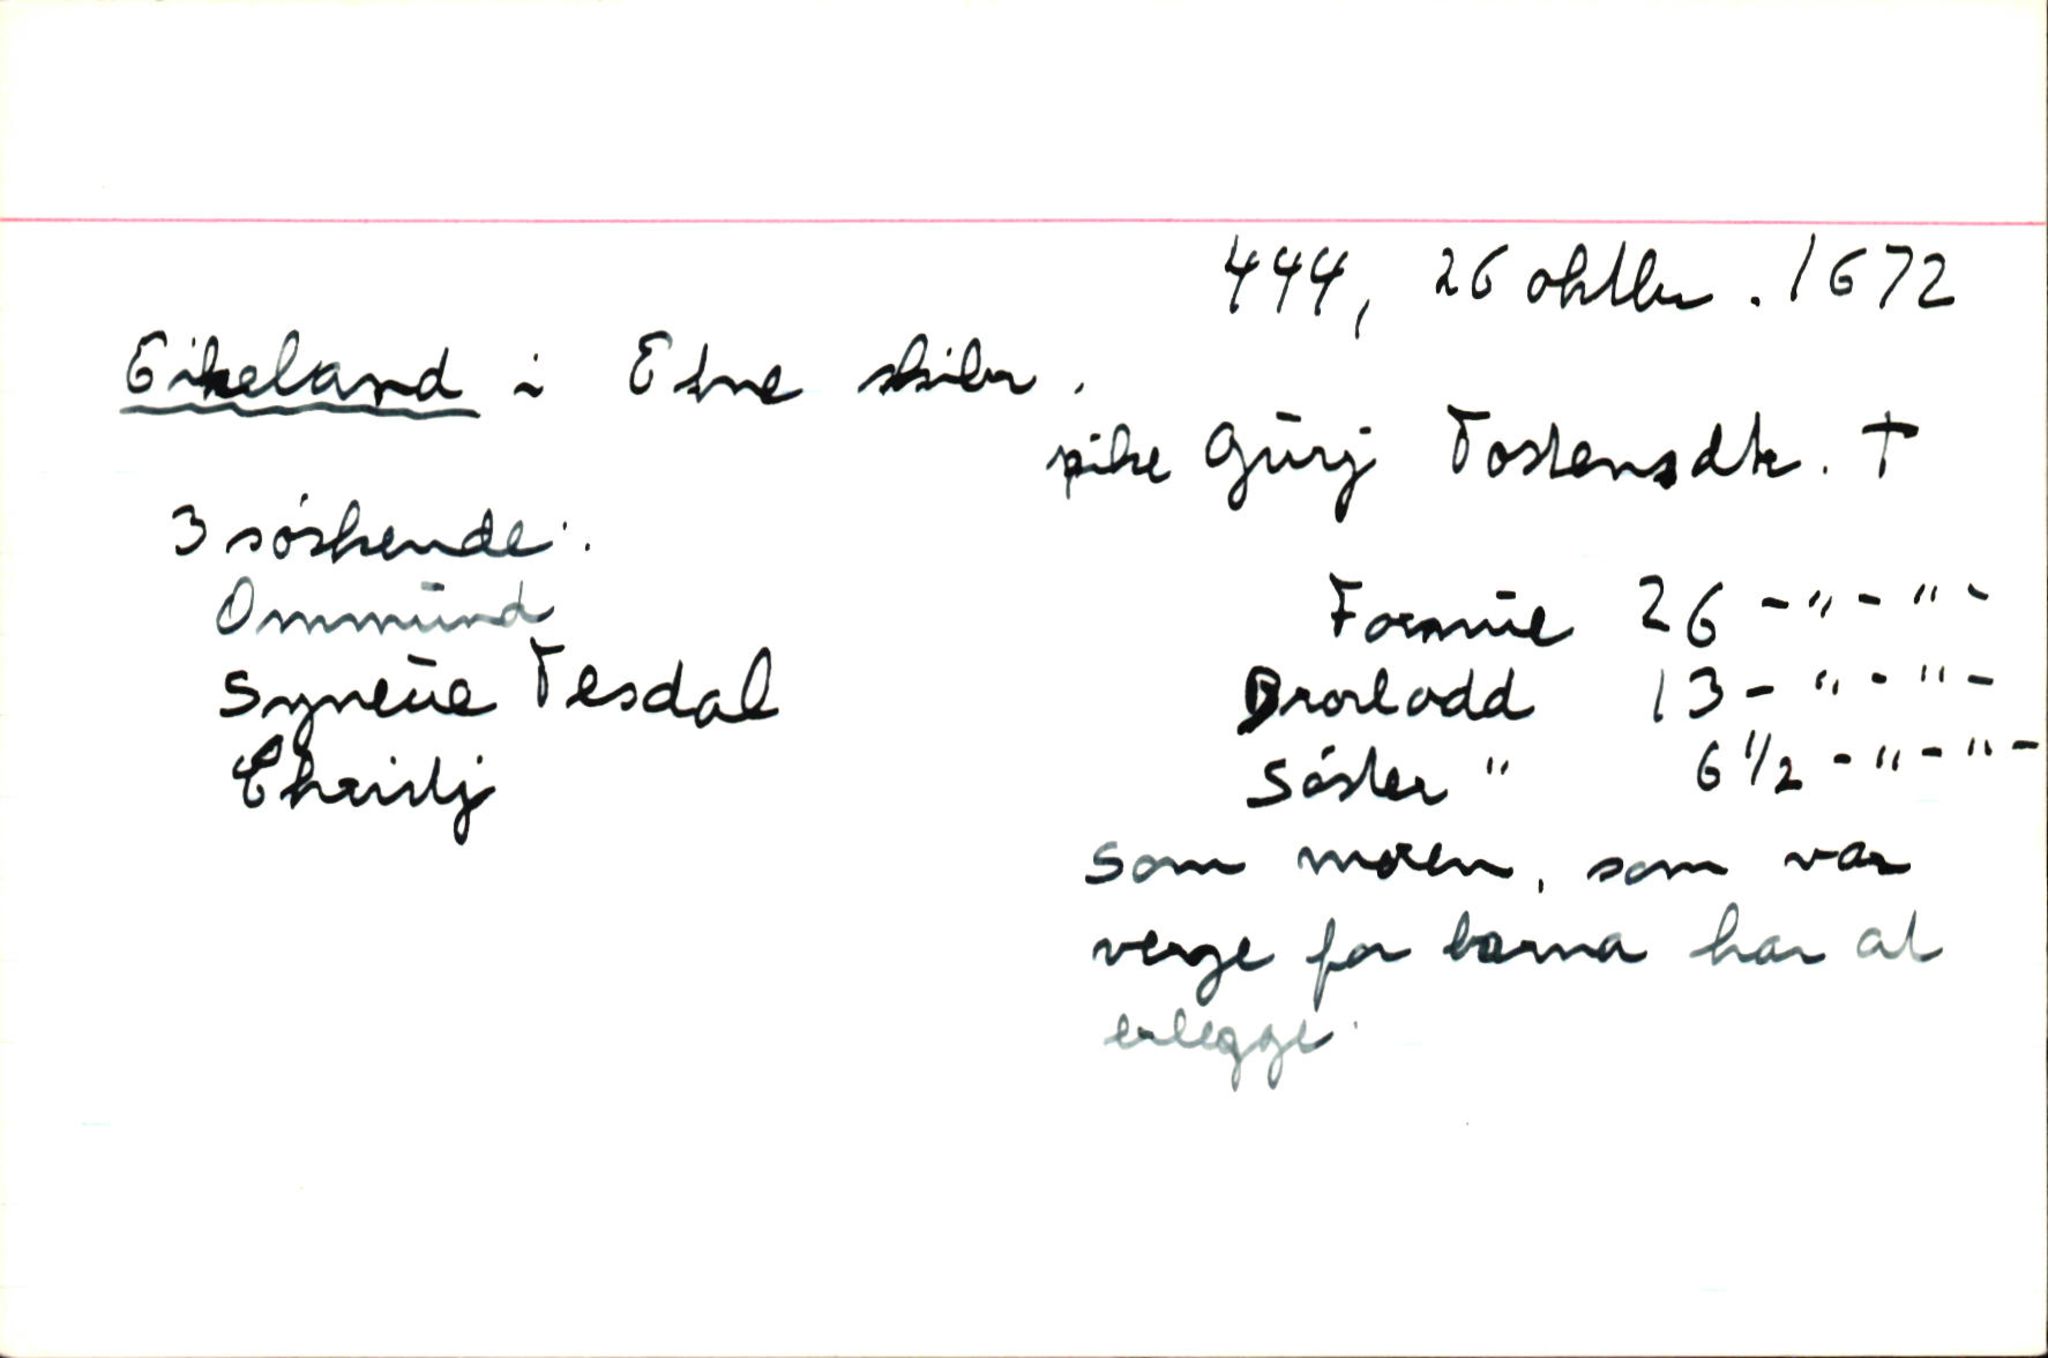 444, 26 oktbr. 1672
Eikeland i Etne skibr.
pike Gúrj Tostensdtr. †
3 söskende:
Ommúnd
Syneúe Tesdal
Christj
Formúe 26 - " - " -
Brorlodd 13 - " - " -
Söster " 6 1/2 - " - " -
som moren, som var
verge for barna har at
erlegge.